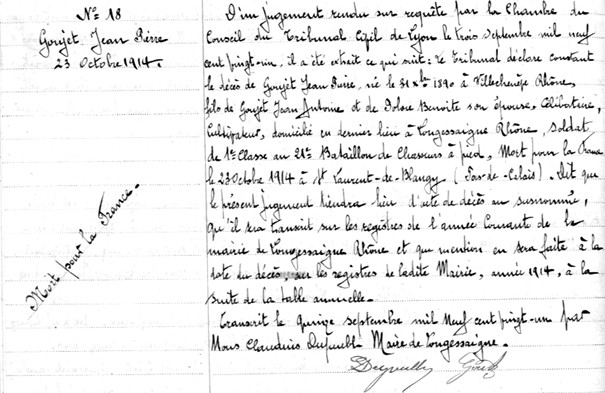 N° 18
Goujet Jean Pierre
23 Octobre 1914.
Mort pour la France.
D'un jugement rendu sur requête par la Chambre du
Conseil du Tribunal Civil de Lyon le trois septembre mil neuf
cent vingt-un, il a été extrait ce qui suit : Le Tribunal déclare constant
le décès de Goujet Jean Pierre, né le 31 Xbre 1890 à Villechenève Rhône,
fils de Goujet Jean Antoine et de Dolore Benoite son épouse, Célibataire,
Cultivateur, domicilié en dernier lieu à Longessaigne Rhône, Soldat
de 1re Classe au 21e Bataillon de Chasseurs à pied, Mort pour la France
le 23 Octobre 1914 à St Laurent-de-Blangy (Pas-de-Calais). Dit que
le présent jugement tiendra lieu d'acte de décès au susnommé,
qu'il sera transcrit sur les registres de l'année Courante de la
mairie de Longessaigne Rhône et que mention en sera faite à la
date du décès, sur les registres de ladite Mairie, année 1914, à la
suite de la table annuelle.
Transcrit le quinze septembre mil neuf cent vingt-un par
Nous Claudius Maire de Longessaigne.